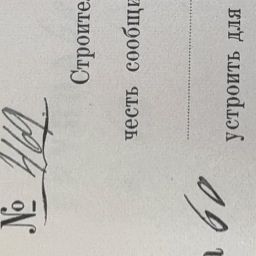 № 461
Строите
честь сообщи
устроить для
60